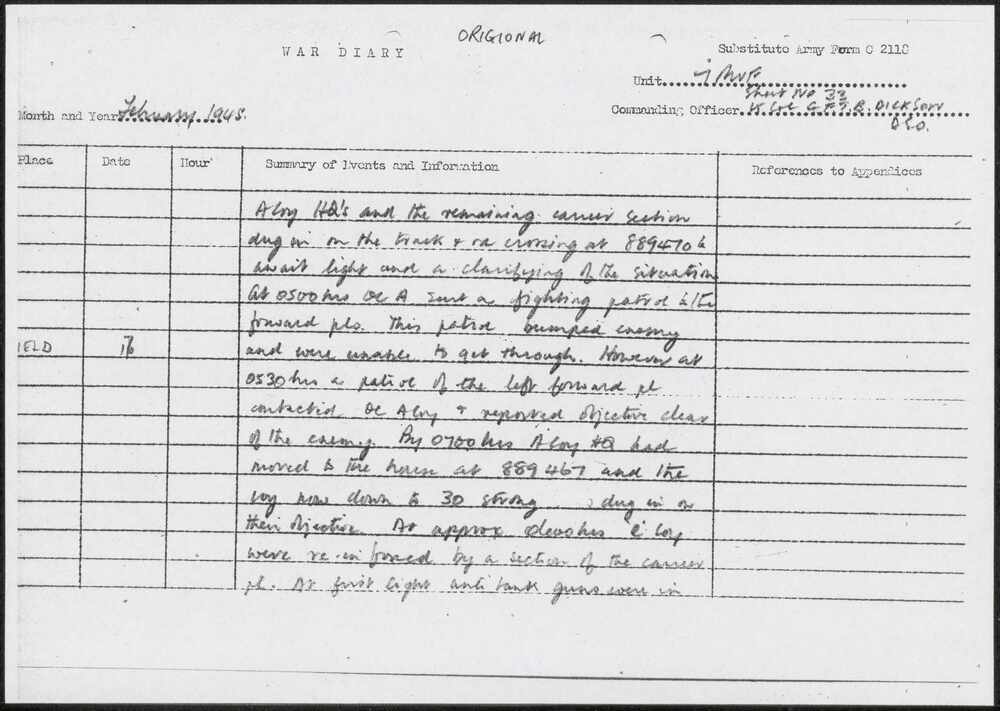 ORIGIONAL
WAR DIARY
Substitute Army Form C 2118
Unit
Sheet No 33
Month and Year February 1945.
Commanding Officer. Lt Col G.F.T.B. DICKSON
DSO.
Place Date Hour Summary of Events and Information References to Appendices
A Coy HQ's and the remaining carrier section
dug in on the track & rd crossing at 889470 to
await light and a clarifying of the situation
At 0500 hrs OC A sent a fighting patrol to the
forward pls. This patrol bumped enemy
IELD 16 and were unable to get through. However at
0530 hrs a patrol of the left forward pl
contacted OC A Coy & reported objective clear
of the enemy. By 0700 hrs A Coy HQ had
moved to the house at 889467 and the
coy now down to 30 strong dug in on
their objective. At approx hrs C Coy
were re-inforced by a section of the carrier
pl. At first light anti tank guns were in